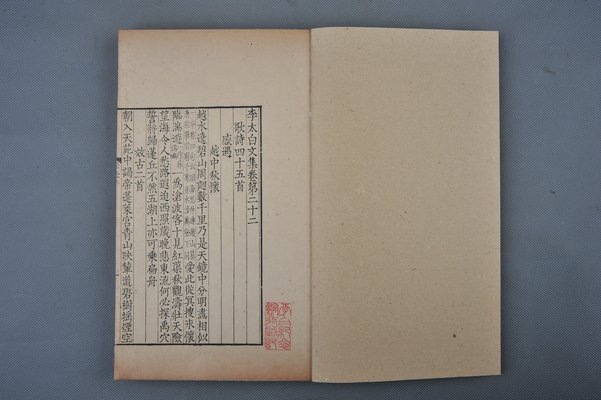 李太白文集卷第二十二
歌詩四十五首
感遇
越中秋懷
越水遶碧山周迴數千里乃是天鏡中分明畫相似
愛此從冥搜永懷
臨湍遊一爲滄波客十見紅蕖秋觀濤壯天險
望海令人愁路遐迫西照歲晚悲東流何必探禹穴
誓將歸蓬丘不然五湖上亦可乗扁舟
效古二首
朝入天苑中謁帝蓬萊宮青山映輦道碧樹揺煙空